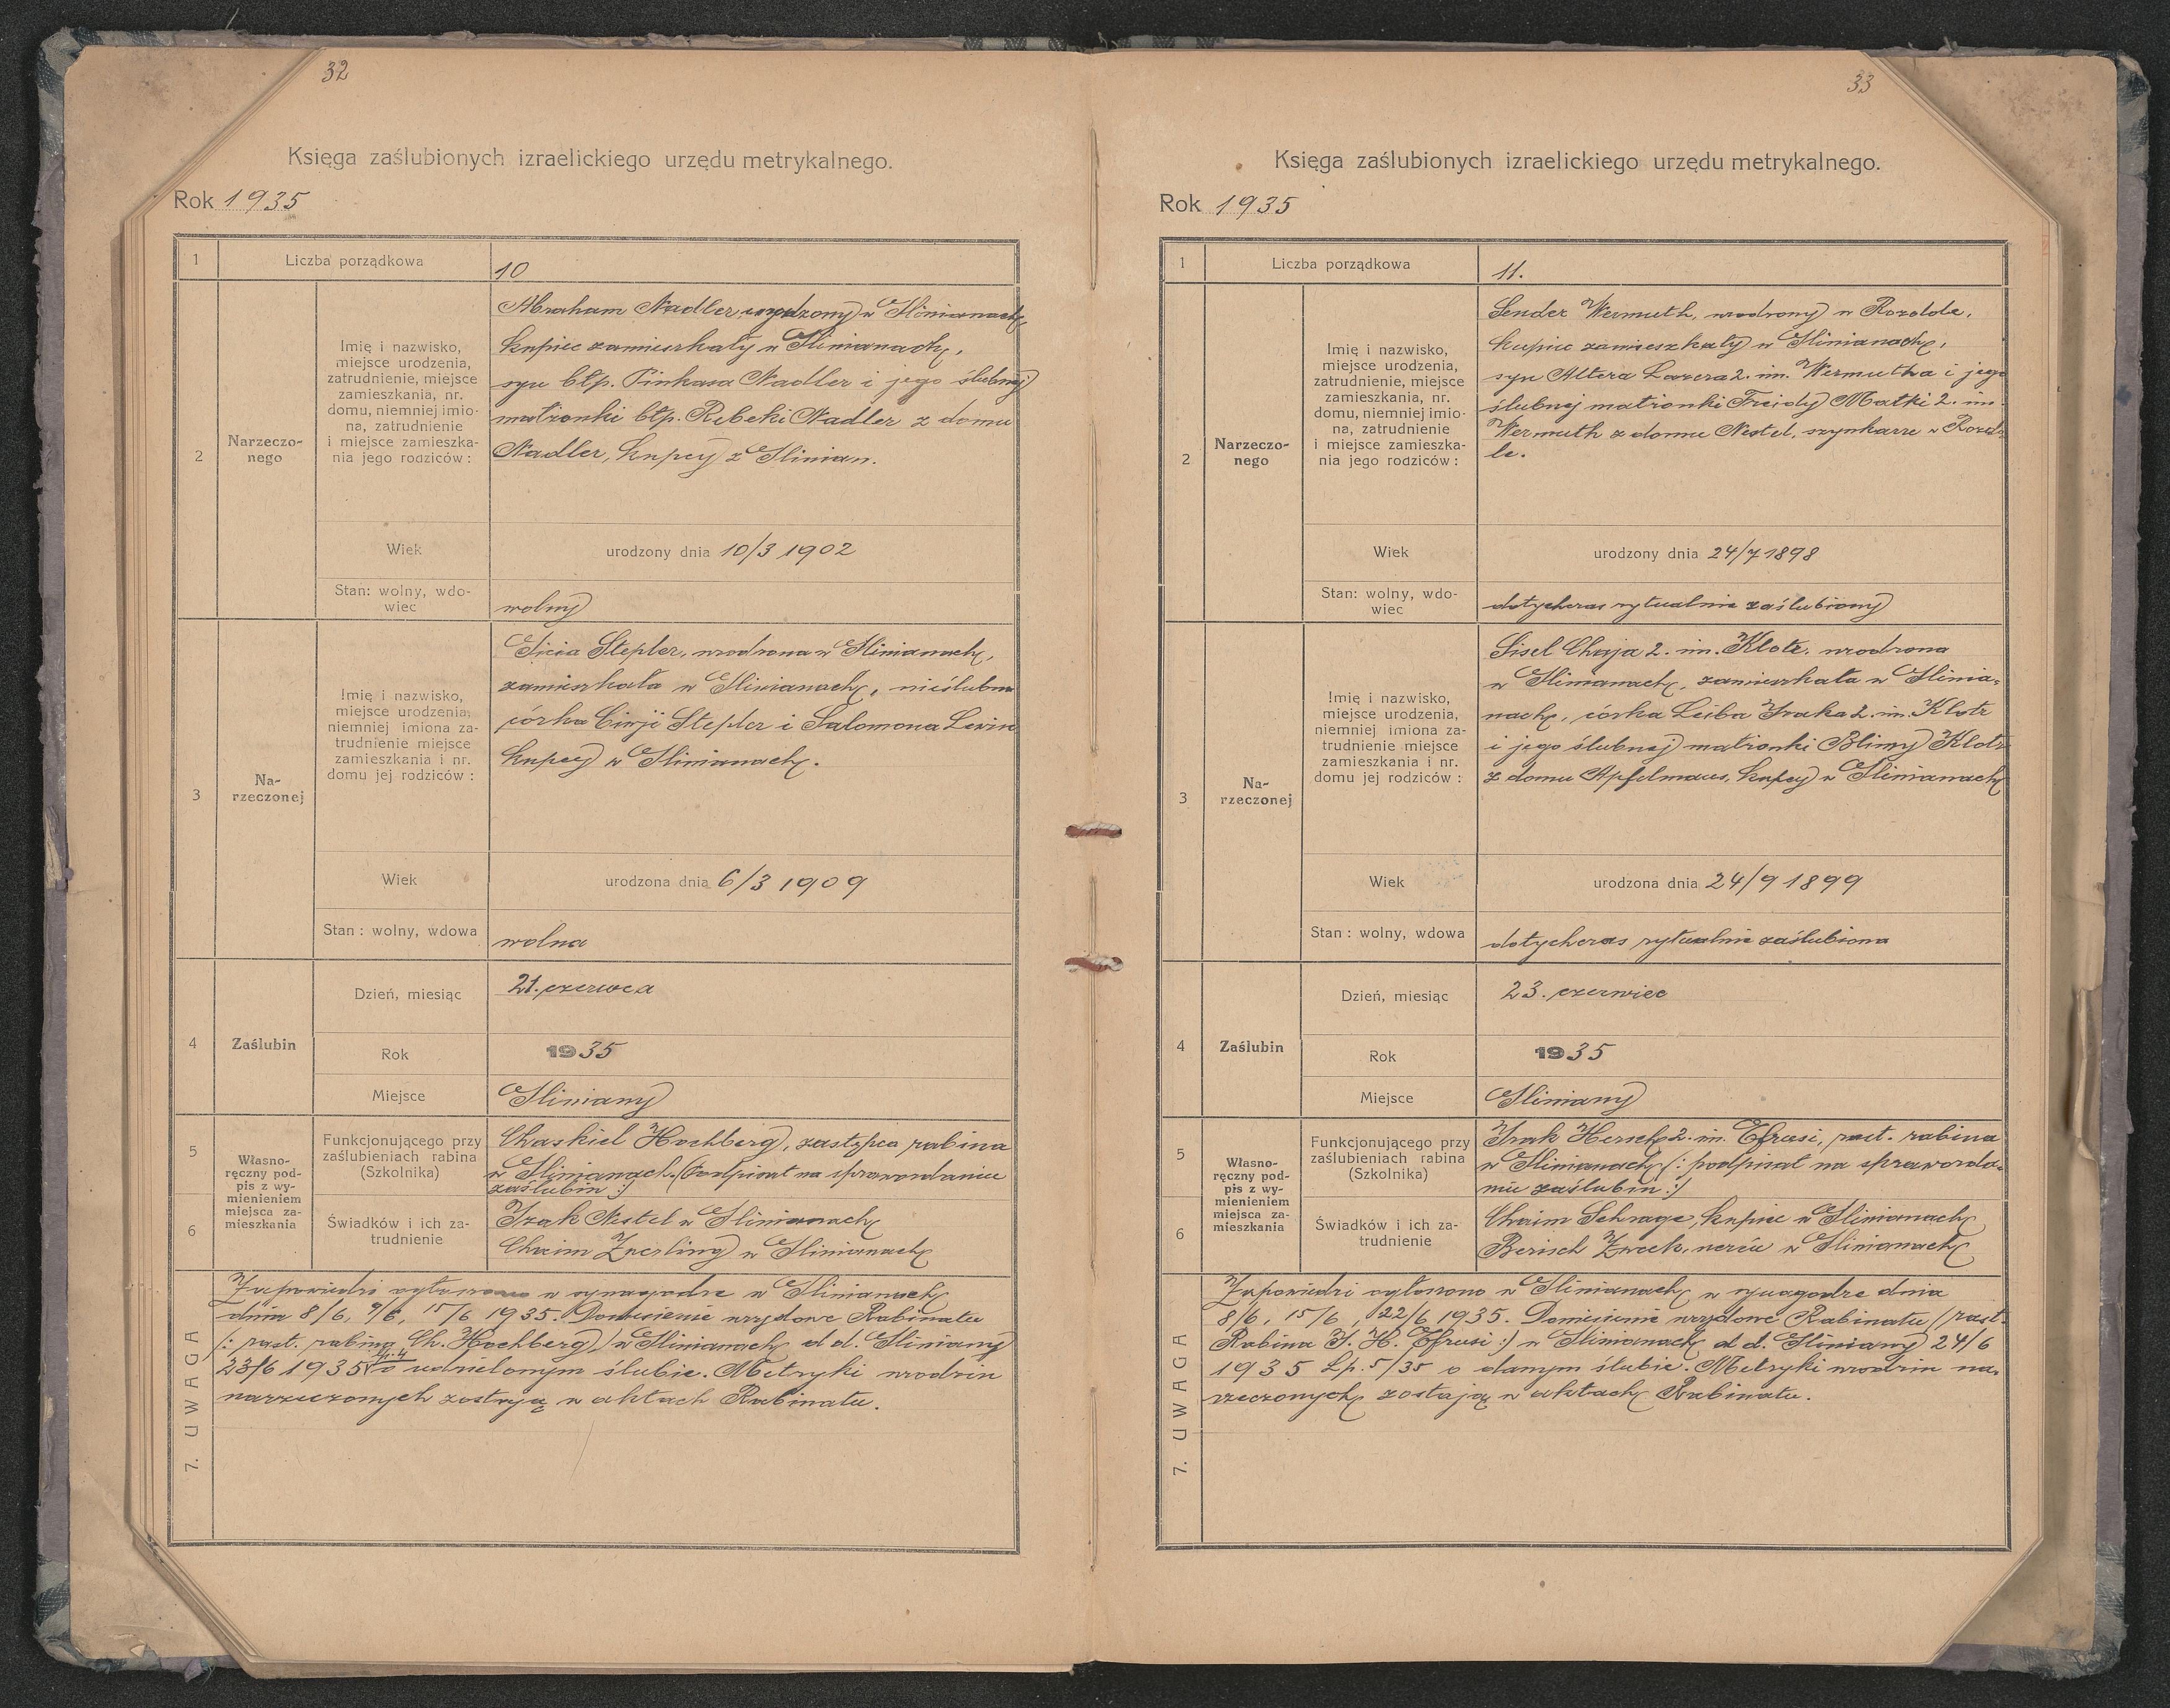 32
Księga zaślubionych izraelickiego urzędu metrykalnego.
Rok 1935
1
Liczba porządkowa
10
2
Narzeczo-
nego
Imię i nazwisko,
miejsce urodzenia,
zatrudnienie, miejsce
zamieszkania, nr.
domu, niemniej imio-
na, zatrudnienie
i miejsce zamieszka-
nia jego rodziców :
Abraham Nadler, urodzony w Glinianach,
kupiec zamieszkały w Glinianach,
syn błp. Pinkasa Nadler i jego ślubnej
małżonki błp. Rebeki Nadler z domu
Nadler, kupcy z Glinian.
Wiek
urodzony dnia 10/3 1902
Stan: wolny, wdo-
wiec
wolny
3
Na-
rzeczonej
Imię i nazwisko,
miejsce urodzenia,
niemniej imiona za-
trudnienie miejsce
zamieszkania i nr.
domu jej rodziców :
Stepler, urodzona w Glinianach,
zamieszkała w Glinianach, nieślubna
córka Ciroji Stepler i Salomona Lewin
kupcy w Glinianach.
Wiek
urodzona dnia 6/3 1909
Stan : wolny, wdowa
wolna
4
Zaślubin
Dzień, miesiąc
21. czerwca
Rok
1935
Miejsce
Gliniany
5
6
Własno-
ręczny pod-
pis z wy-
mienieniem
miejsca za-
mieszkania
Funkcjonującego przy
zaślubieniach rabina
(Szkolnika)
Chaskiel Hochberg, zastępca rabina
w Glinianach. (podpisał na sprawozdaniu
zaślubin :)
Świadków i ich za-
trudnienie
Izak Nestel w Glinianach
Chaim Znerling w Glinianach
7. UWAGA
Zapowiedzi ogłoszono w synagodze w Glinianach
dnia 8/6, 9/6, 15/6 1935. Doniesienie urzędowe Rabinatu
(: zast. rabina Ch. Hochberg) w Glinianach d d. Gliniany
23/6 1935 o udzielonym ślubie. Metryki urodzin
narzeczonych zostają w aktach Rabinatu.
33
Księga zaślubionych izraelickiego urzędu metrykalnego.
Rok 1935
1
Liczba porządkowa
11.
2
Narzeczo-
nego
Imię i nazwisko,
miejsce urodzenia,
zatrudnienie, miejsce
zamieszkania, nr.
domu, niemniej imio-
na, zatrudnienie
i miejsce zamieszka-
nia jego rodziców :
Sender Wermuth, urodzony w Rozdole,
kupiec zamieszkały w Glinianach,
syn Altera Lazera 2. im. Wermutha i jego
ślubnej małżonki Freidy Matki 2. im.
Wermuth z domu Nestel, szynkarze w Rozdo-
le.
Wiek
urodzony dnia 24/7 1898
Stan: wolny, wdo-
wiec
dotychczas rytualnie zaślubiony
3
Na-
rzeczonej
Imię i nazwisko,
miejsce urodzenia,
niemniej imiona za-
trudnienie miejsce
zamieszkania i nr.
domu jej rodziców :
Sisel Chaja 2. im. Klotz, urodzona
w Glinianach, zamieszkała w Glinia-
nach, córka Leiba Izaka 2. im. Klotz
i jego ślubnej małżonki Blimy Klotz
z domu Apfelmaus, kupcy w Glinianach
Wiek
urodzona dnia 24/9 1899
Stan : wolny, wdowa
dotychczas rytualnie zaślubiona
4
Zaślubin
Dzień, miesiąc
23. czerwiec
Rok
1935
Miejsce
Gliniany
5
6
Własno-
ręczny pod-
pis z wy-
mienieniem
miejsca za-
mieszkania
Funkcjonującego przy
zaślubieniach rabina
(Szkolnika)
Izak Hersch 2. im. Efrusi, zast. rabina
w Glinianach (: podpisał na sprawozda-
niu zaślubin :)
Świadków i ich za-
trudnienie
Chaim Schrage, kupiec w Glinianach
Berisch Zweck, w Glinianach
7. UWAGA
Zapowiedzi ogłoszono w Glinianach w synagodze dnia
8/6, 15/6, 22/6 1935. Doniesienie urzędowe Rabinatu (zast.
Rabina I. H. Efrusi :) w Glinianach d d. Gliniany 24/6
1935 Lp. 5/35 o danym ślubie. Metryki urodzin na-
rzeczonych zostają w aktach Rabinatu.